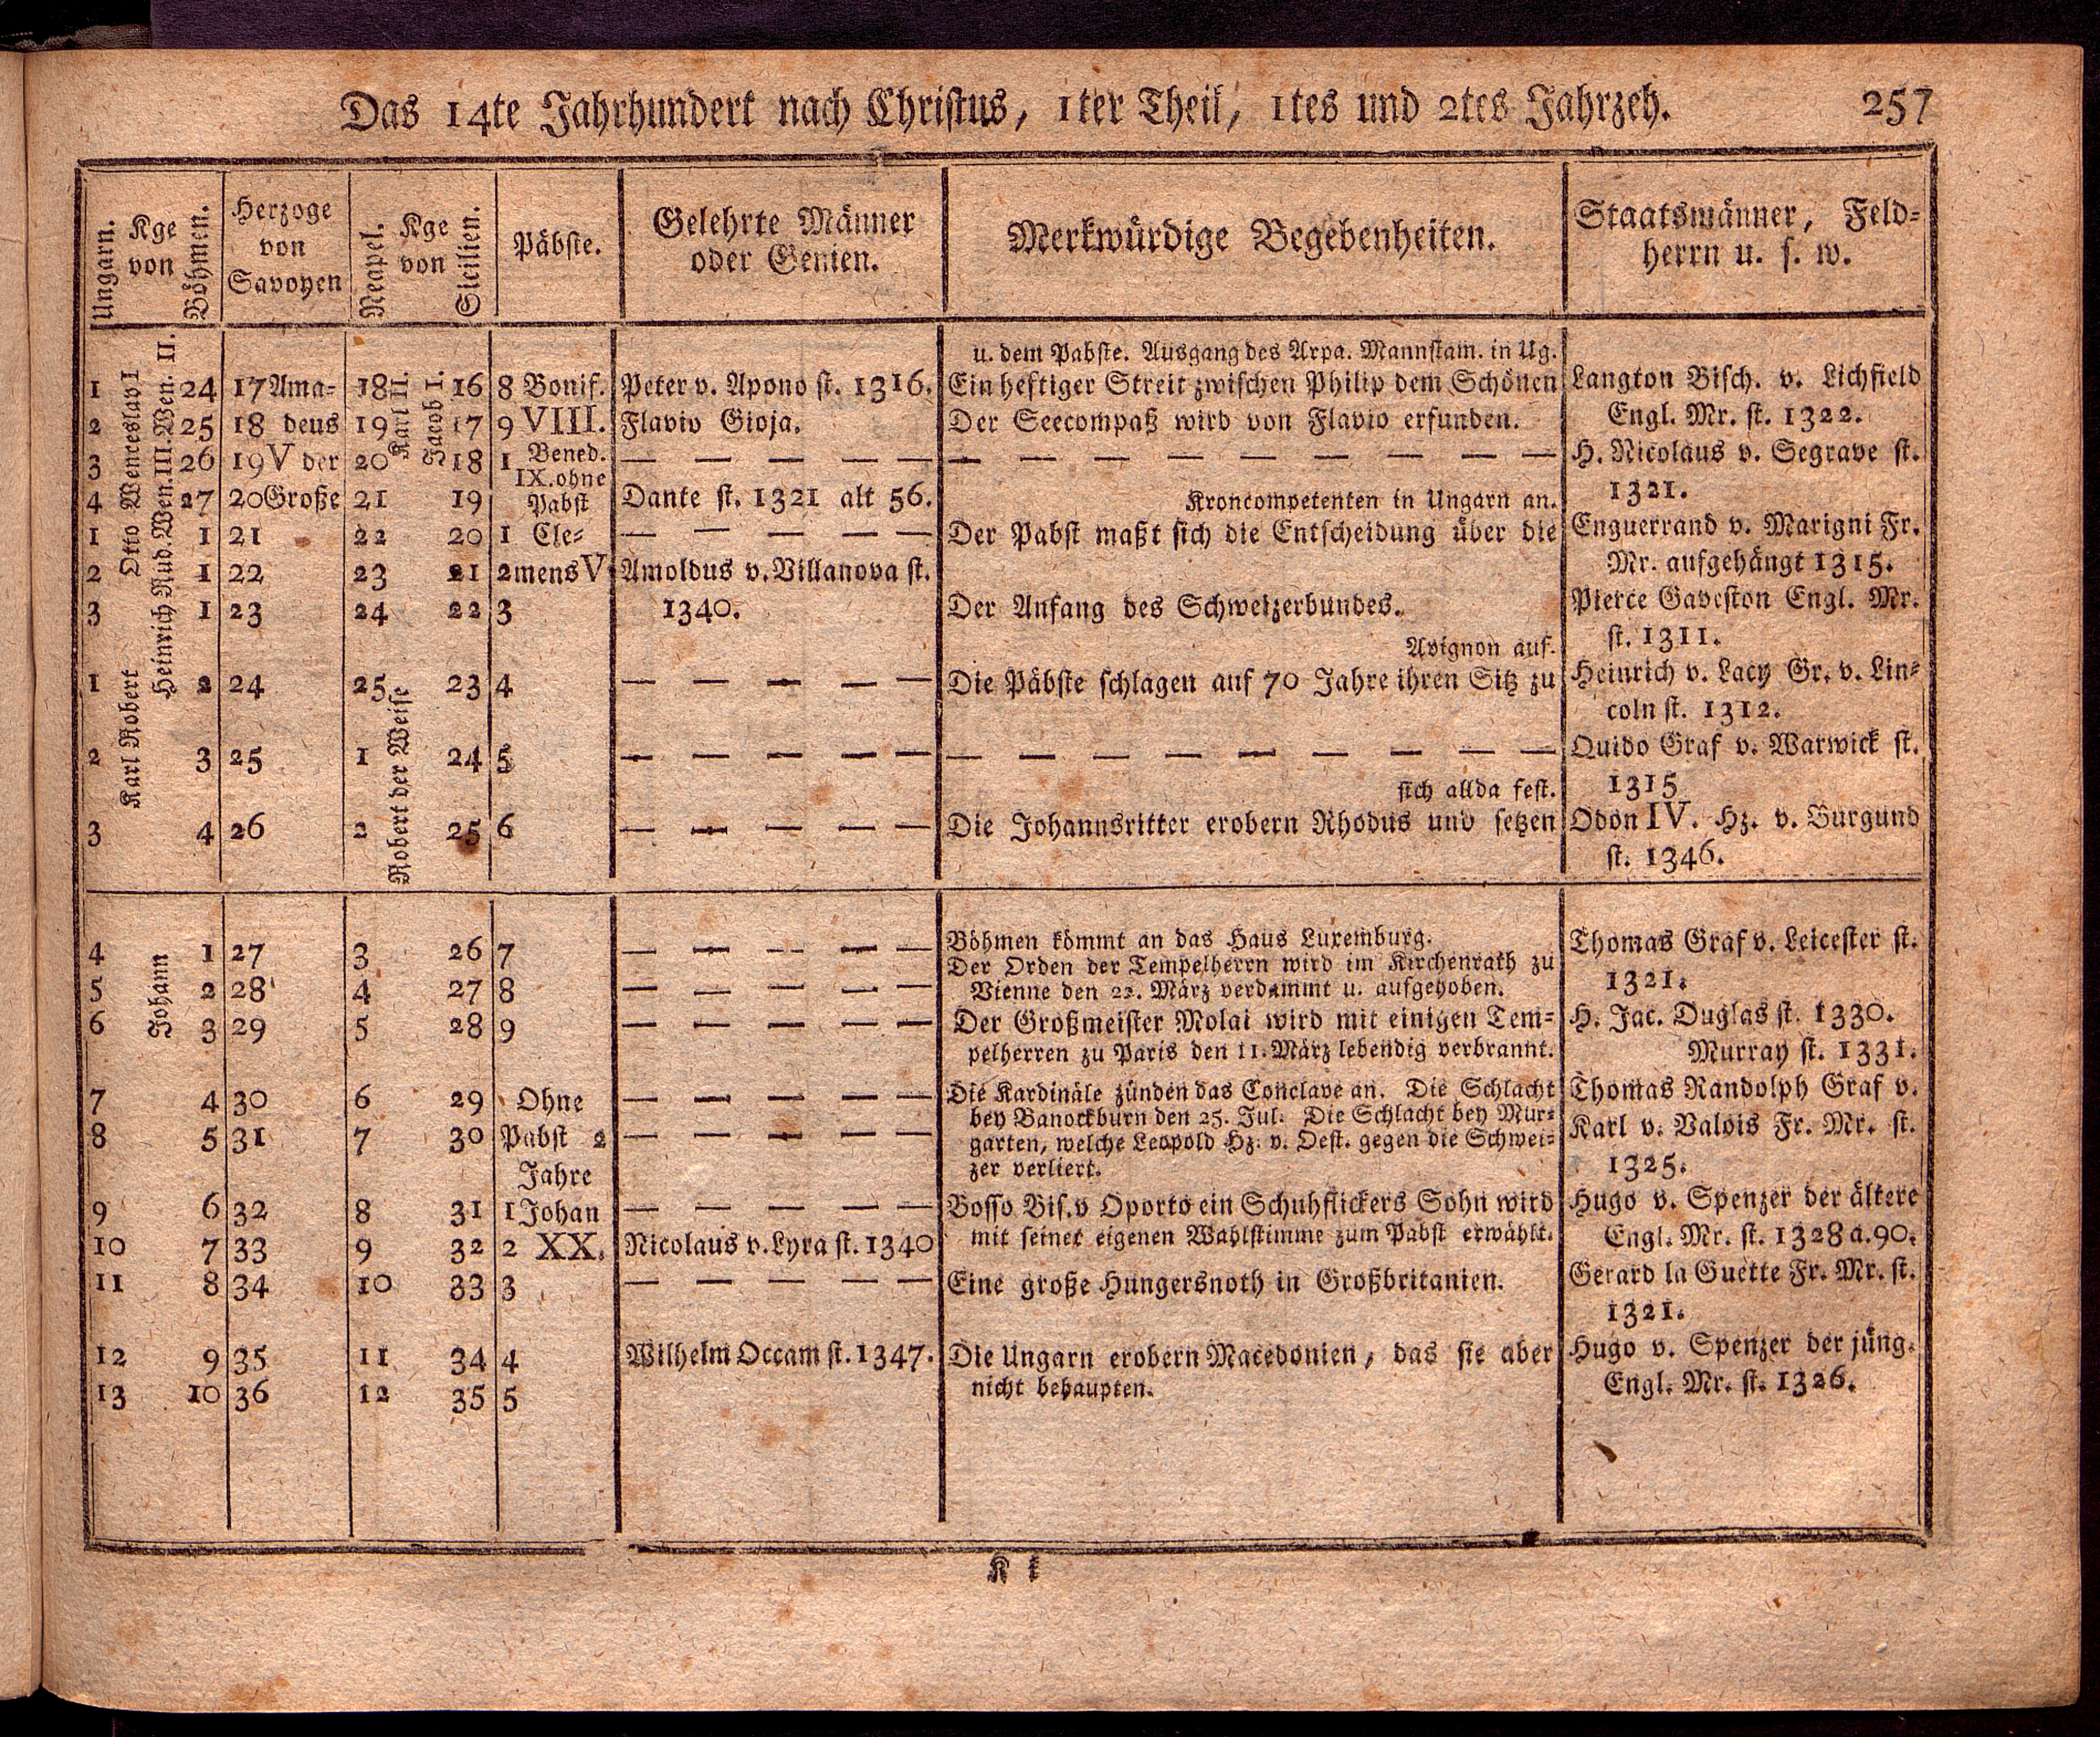 Das 14te Jahrhundert nach Christus, 1ter Theil, 1tes und 2tes Jahrzeh. 257
Ungarn. Kge von Böhmen.
Herzoge von Savoyen
Neapel. Kge von Sicilien.
Päbste.
Gelehrte Männer oder Genien.
Merkwürdige Begebenheiten.
Staatsmänner, Feld-
herrn u. s. w.
Otto Wenceslav I
Heinrich Rud. Wen. III. Wen. II.
Karl II.
Jacob I.
Karl Robert
Robert der Weise
u. dem Pabste. Ausgang des Arpa. Mannstam. in Ug.
1 24 17 Ama- 18 16 8 Bonif. Peter v. Apono st. 1316. Ein heftiger Streit zwischen Philip dem Schönen Langton Bisch. v. Lichfield
2 25 18 deus 19 17 9 VIII. Flavio Gioja. Der Seecompaß wird von Flavio erfunden. Engl. Mr. st. 1322.
3 26 19 V der 20 18 1 Bened. — — — — — — — — — — — — — H. Nicolaus v. Segrave st.
IX. ohne
4 27 20 Große 21 19 Pabst Dante st. 1321 alt 56. Kroncompetenten in Ungarn an. 1321.
1 1 21 22 20 1 Cle- — — — — — Der Pabst maßt sich die Entscheidung über die Enguerrand v. Marigni Fr.
2 1 22 23 21 2 mens V Arnoldus v. Villanova st. Mr. aufgehängt 1315.
3 1 23 24 22 3 1340. Der Anfang des Schweizerbundes. Pierce Gaveston Engl. Mr.
Avignon auf. st. 1311.
1 2 24 25 23 4 — — — — — Die Päbste schlagen auf 70 Jahre ihren Sitz zu Heinrich v. Lacy Gr. v. Lin-
coln st. 1312.
2 3 25 1 24 5 — — — — — — — — — — — — — Quido Graf v. Warwick st.
sich allda fest. 1315
3 4 26 2 25 6 — — — — — Die Johannsritter erobern Rhodus und setzen Odon IV. Hz. v. Burgund
st. 1346.
Johann
4 1 27 3 26 7 — — — — — Böhmen kömmt an das Haus Luxemburg. Thomas Graf v. Leicester st.
Der Orden der Tempelherrn wird im Kirchenrath zu
5 2 28 4 27 8 — — — — — Vienne den 22. März verdammt u. aufgehoben. 1321.
6 3 29 5 28 9 — — — — — Der Großmeister Molai wird mit einigen Tem- H. Jac. Duglas st. 1330.
pelherren zu Paris den 11. März lebendig verbrannt. Murray st. 1331.
7 4 30 6 29 Ohne — — — — — Die Kardinäle zünden das Conclave an. Die Schlacht Thomas Randolph Graf v.
bey Banockburn den 25. Jul. Die Schlacht bey Mur-
8 5 31 7 30 Pabst 2 — — — — — garten, welche Leopold Hz. v. Oest. gegen die Schwei- Karl v. Valois Fr. Mr. st.
Jahre zer verliert. 1325.
9 6 32 8 31 1 Johan — — — — — Bosso Bis. v Oporto ein Schuhflickers Sohn wird Hugo v. Spenzer der ältere
10 7 33 9 32 2 XX. Nicolaus v. Lyra st. 1340 mit seiner eigenen Wahlstimme zum Pabst erwählt. Engl. Mr. st. 1328 a. 90.
11 8 34 10 33 3 — — — — — Eine große Hungersnoth in Großbritanien. Gerard la Guette Fr. Mr. st.
1321.
12 9 35 11 34 4 Wilhelm Occam st. 1347. Die Ungarn erobern Macedonien, das sie aber Hugo v. Spenzer der jüng.
13 10 36 12 35 5 nicht behaupten. Engl. Mr. st. 1326.
K k